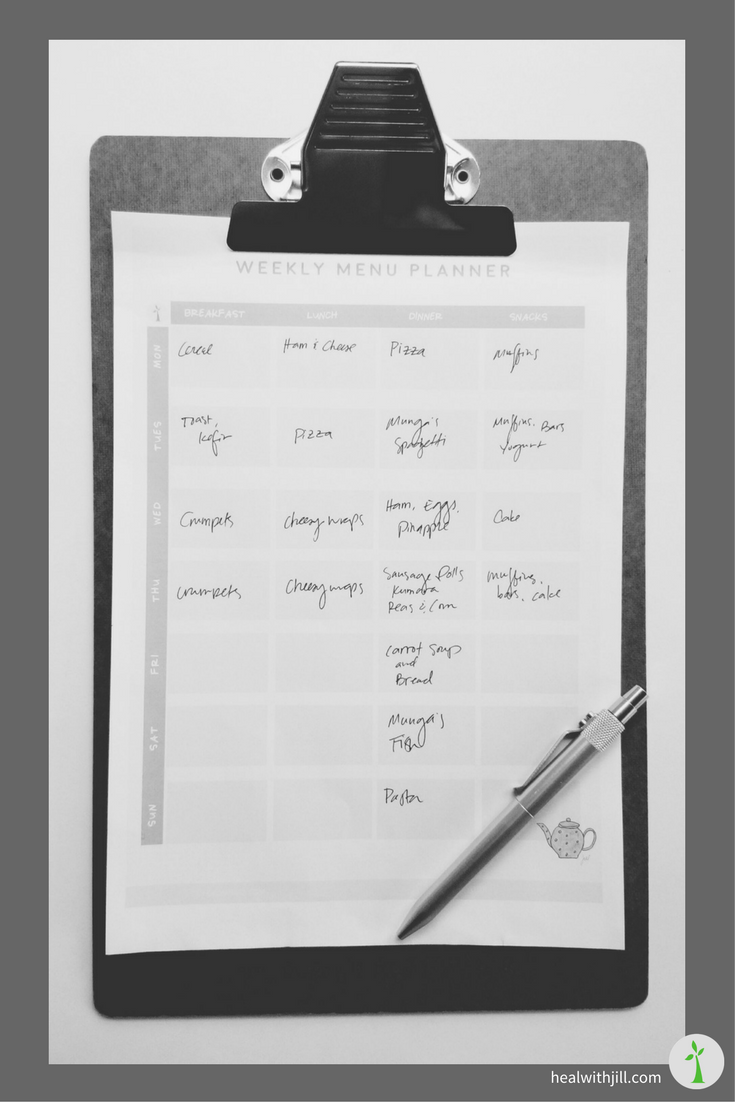 WEEKLY MENU PLANNER
BREAKFAST LUNCH DINNER SNACKS
MON
Cereal
Ham & Cheese
Pizza
Muffins
TUES
Toast,
Kefir
Pizza
Munga's
Spagetti
Muffins, Bars
Yogurt
WED
Crumpets
Cheesy wraps
Ham, Eggs,
Pinapple
Cake
THU
Crumpets
Cheesy wraps
Sausage Rolls
Kumara
Peas & Corn
Muffins,
bars, cake
FRI
Carrot Soup
and
Bread
SAT
Munga's
Fish
SUN
Pasta
healwithjill.com